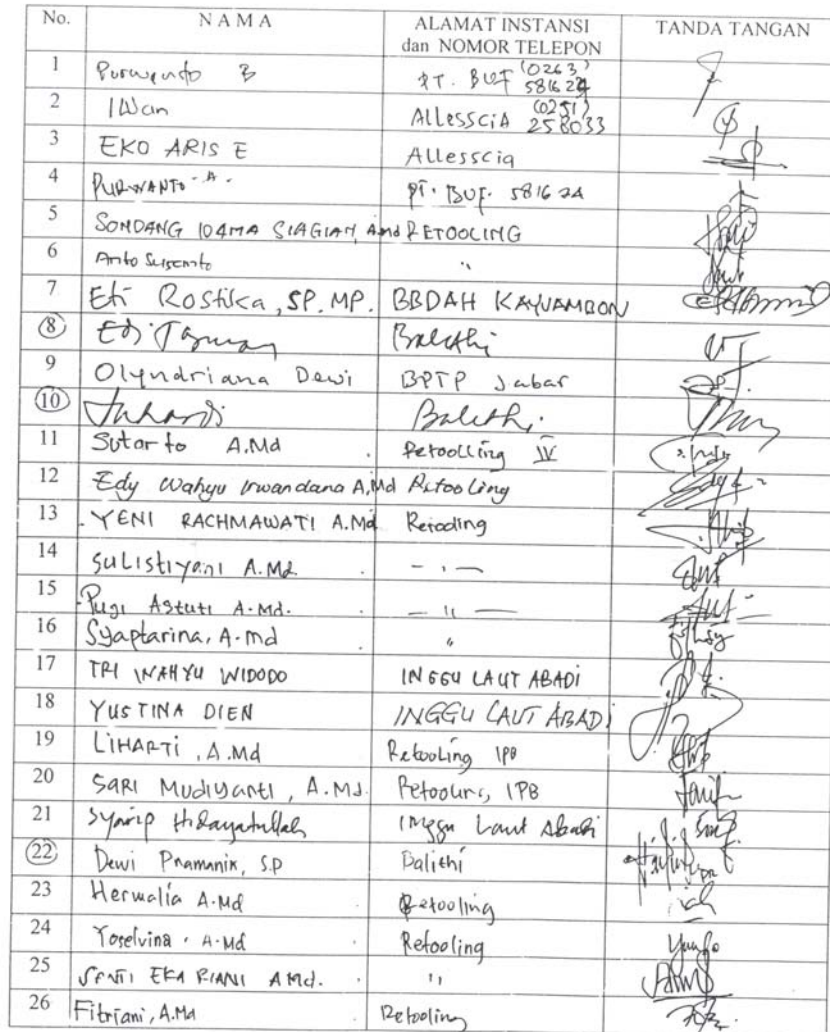 No. NAMA ALAMAT INSTANSI dan NOMOR TELEPON TANDA TANGAN
1 Purwanto B PT. BUF (0263) 581624
2 IWan AllessciA (0251) 258033
3 EKO ARIS E Allesscia
4 PURWANTO A. PT. BUF. 581624
5 SONDANG IDAMA SIAGIAN, Amd RETOOLING
6 Anto Susanto "
7 Eti Rostika, SP. MP. BBDAH KAYUAMBON
8 Edi Balithi
9 Olyndriana Dewi BPTP Jabar
10 Balithi
11 Sutarto A.Md Retoolling IV
12 Edy Wahyu Irwandana A,Md Retooling
13 YENI RACHMAWATI A.Md Retooling
14 Sulistiyani A.Md. - " -
15 Puji Astuti A.Md. - " -
16 Syaptarina, A.md "
17 TRI WAHYU WIDODO INGGU LAUT ABADI
18 YUSTINA DIEN INGGU LAUT ABADI
19 LIHARTI, A.Md Retooling IPB
20 SARI Mudiyanti, A.Md. Retooling, IPB
21 Syarip Hidayatullah Inggu Laut Abadi
22 Dewi Pramanik, S.P Balithi
23 Hermalia A.Md Retooling
24 Yoselvina, A.Md Retooling
25 SENTI EKA RIANI AMd. "
26 Fitriani, A.Md Retooling